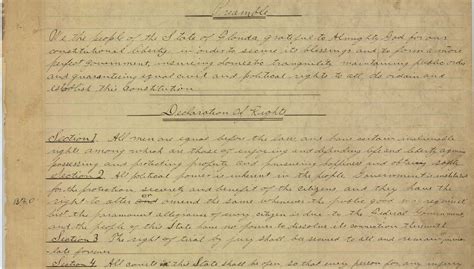 Preamble
We the people of the State of Florida, grateful to Almighty God for our
constitutional liberty, in order to secure its blessings and to form a more
perfect government, insuring domestic tranquility maintaining public order
and guaranteeing equal civil and political rights to all, do ordain and
establish this Constitution
Declaration Of Rights
Section 1 All men are equal before the law and have certain inalienable
rights, among which are those of enjoying and defending life and liberty
possessing and protecting property and pursuing happiness and
Section 2 All political power is inherent in the people Government is instituted
for the protection security and benefit of the citizens and they have the
right to alter or amend the same whenever the public good
but the paramount allegiance of every citizen is due to the Federal Government
and the people of this State have no power to dissolve its connection therewith
Section 3 The right of trial by jury shall be secured to all and remain
late forever
Section 4 All courts in this State shall be open, so that every person for any injury